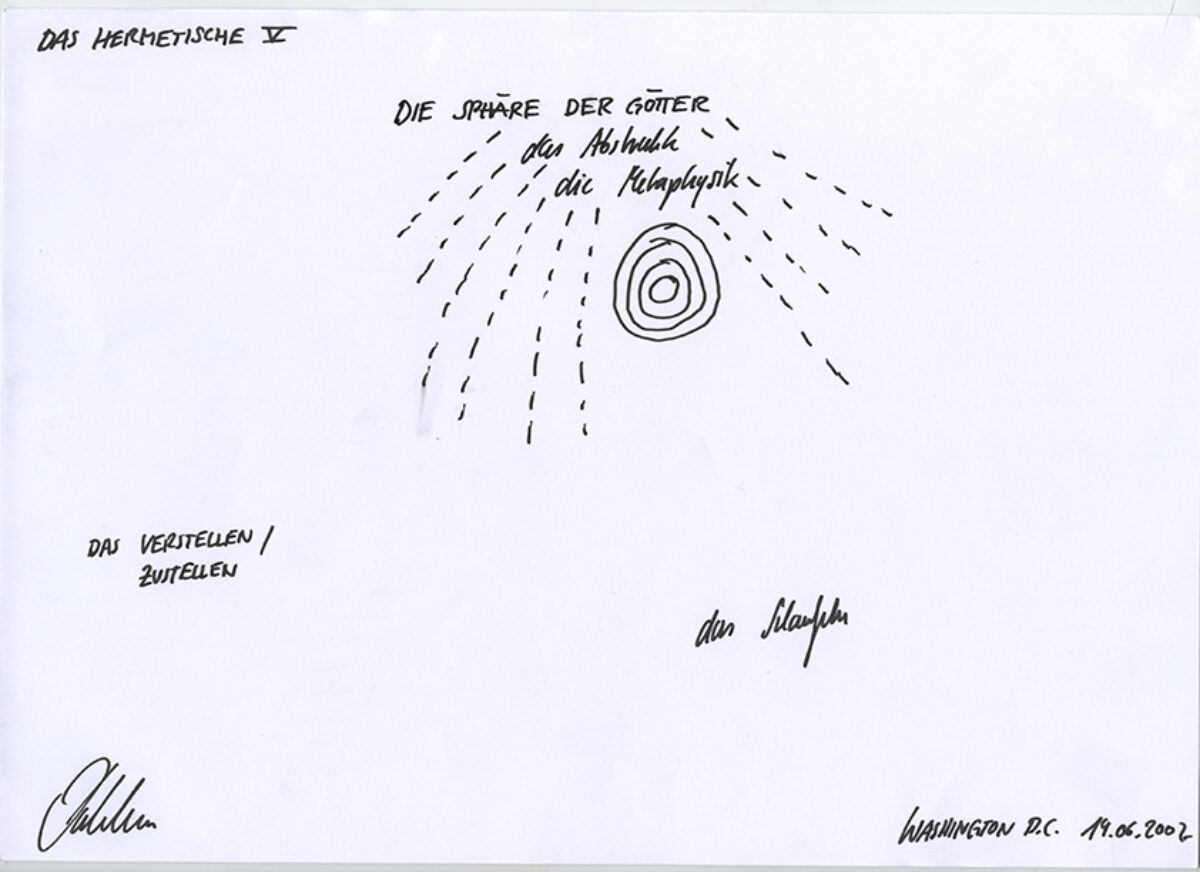 DAS HERMETISCHE V
DIE SPHÄRE DER GÖTTER
das Abstrakte
die Metaphysik
DAS VERSTELLEN /
ZUSTELLEN
das
WASHINGTON D.C. 19.06.2002